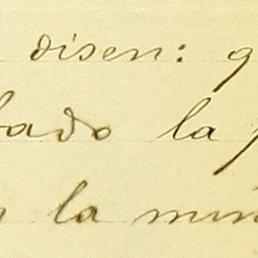 disen: q
bado la p
la mun